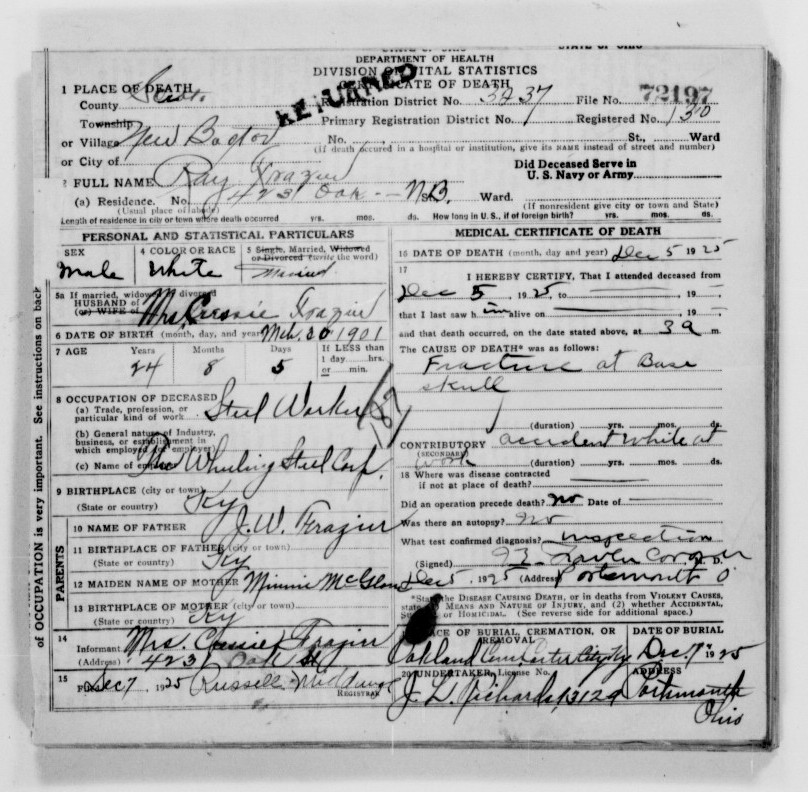 STATE OF OHIO
DEPARTMENT OF HEALTH
DIVISION OF VITAL STATISTICS
CERTIFICATE OF DEATH
RETURNED
1 PLACE OF DEATH
County Scioto Registration District No. 3437 File No. 72197
Township Primary Registration District No. Registered No. 130
or Village New Boston No. St., Ward
(If death occured in a hospital or institution, give its NAME instead of street and number)
or City of
Did Deceased Serve in
U. S. Navy or Army
2 FULL NAME Ray Frazier
(a) Residence. No. 423 Oak N.B. St. Ward.
(Usual place of abode) (If nonresident give city or town and State)
Length of residence in city or town where death occurred yrs. mos. ds. How long in U. S., if of foreign birth? yrs. mos. ds.
PERSONAL AND STATISTICAL PARTICULARS
SEX 4 COLOR OR RACE 5 Single, Married, Widowed
or Divorced (write the word)
Male White Married
5a If married, widowed or divorced
HUSBAND of
(or) WIFE of Mrs. Frazier
6 DATE OF BIRTH (month, day, and year) Mch. 30 1901
7 AGE Years Months Days If LESS than
1 day hrs.
or min.
24 8 5
8 OCCUPATION OF DECEASED
(a) Trade, profession, or
particular kind of work Steel Worker
(b) General nature of Industry,
business, or establishment in
which employed (or employer)
(c) Name of employer The Wheeling Steel Corp.
187
9 BIRTHPLACE (city or town)
(State or country) Ky
PARENTS
10 NAME OF FATHER J. W. Frazier
11 BIRTHPLACE OF FATHER (city or town)
(State or country) Ky
12 MAIDEN NAME OF MOTHER Minnie
13 BIRTHPLACE OF MOTHER (city or town)
(State or country) Ky
14
Informant Mrs. Frazier
(Address) 423 Oak St
15
Filed Dec 7, 1925 Russell
REGISTRAR
of OCCUPATION is very important. See instructions on back
MEDICAL CERTIFICATE OF DEATH
16 DATE OF DEATH (month, day and year) Dec 5 1925
17
I HEREBY CERTIFY, That I attended deceased from
Dec 5, 1925, to , 19
that I last saw him alive on , 19
and that death occurred, on the date stated above, at 3 a m.
The CAUSE OF DEATH* was as follows:
Fracture at Base
skull
(duration) yrs. mos. ds.
CONTRIBUTORY accident while at
(SECONDARY)
work (duration) yrs. mos. ds.
18 Where was disease contracted
if not at place of death?
Did an operation precede death? No Date of
Was there an autopsy? No
What test confirmed diagnosis? inspection
(Signed) Coroner M. D.
Dec 5, 1925 (Address) Portsmouth O
*State the DISEASE CAUSING DEATH, or in deaths from VIOLENT CAUSES,
state (1) MEANS AND NATURE OF INJURY, and (2) whether ACCIDENTAL,
SUICIDAL, or HOMICIDAL. (See reverse side for additional space.)
19 PLACE OF BURIAL, CREMATION, OR REMOVAL DATE OF BURIAL
Oakland Cem Carter City Ky Dec. 7 1925
20 UNDERTAKER, License No. ADDRESS
J. L. Richards 3129 Portsmouth
Ohio